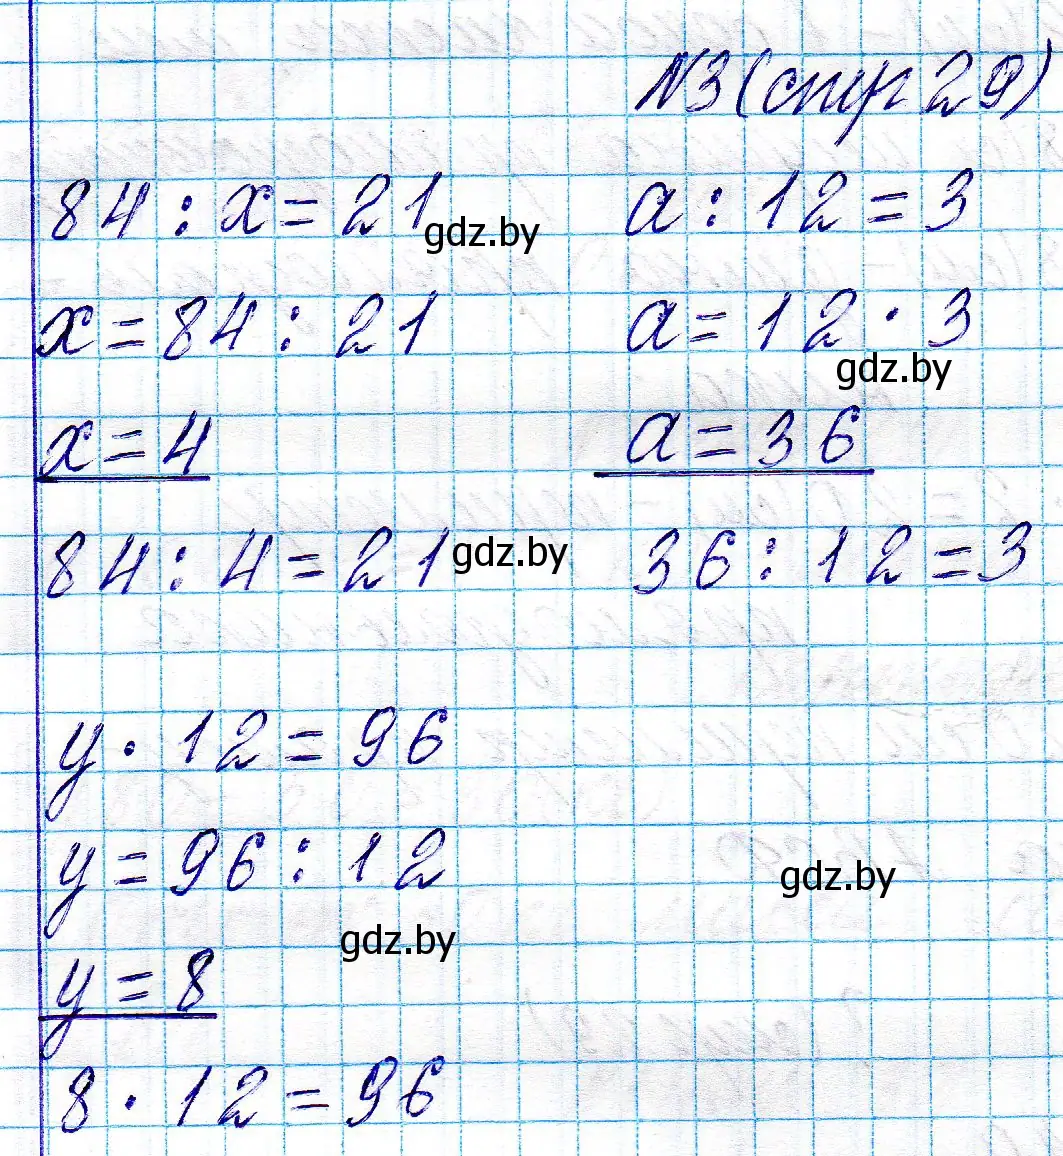 №3 (стр 29)
84 : x = 21 a : 12 = 3
gdz.by
x = 84 : 21 a = 12 · 3
gdz.by
x = 4 a = 36
84 : 4 = 21 gdz.by 36 : 12 = 3
y · 12 = 96
y = 96 : 12
gdz.by
gdz.by
y = 8
8 · 12 = 96